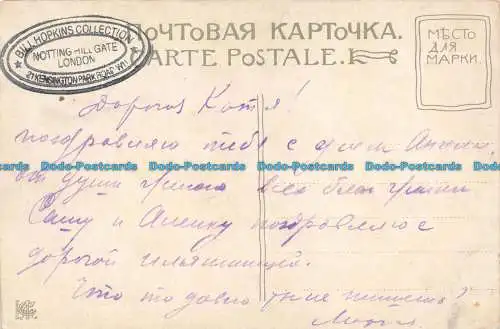 BILL HOPKINS COLLECTION
NOTTING HILL GATE
LONDON
21 KENSINGTON PARK ROAD W11
ПОЧТОВАЯ КАРТОЧКА.
CARTE POSTALE.
МѢСТО
ДЛЯ
МАРКИ.
Дорогая Катя!
поздравляю тебя с днем Ангела,
от души желаю всех благ
Сашу и Аленку поздравляю с
дорогой
Что то давно ты не пишешь?
Dodo-Postcards Dodo-Postcards Dodo-Postcards Dodo-Postcards
Dodo-Postcards Dodo-Postcards Dodo-Postcards Dodo-Postcards